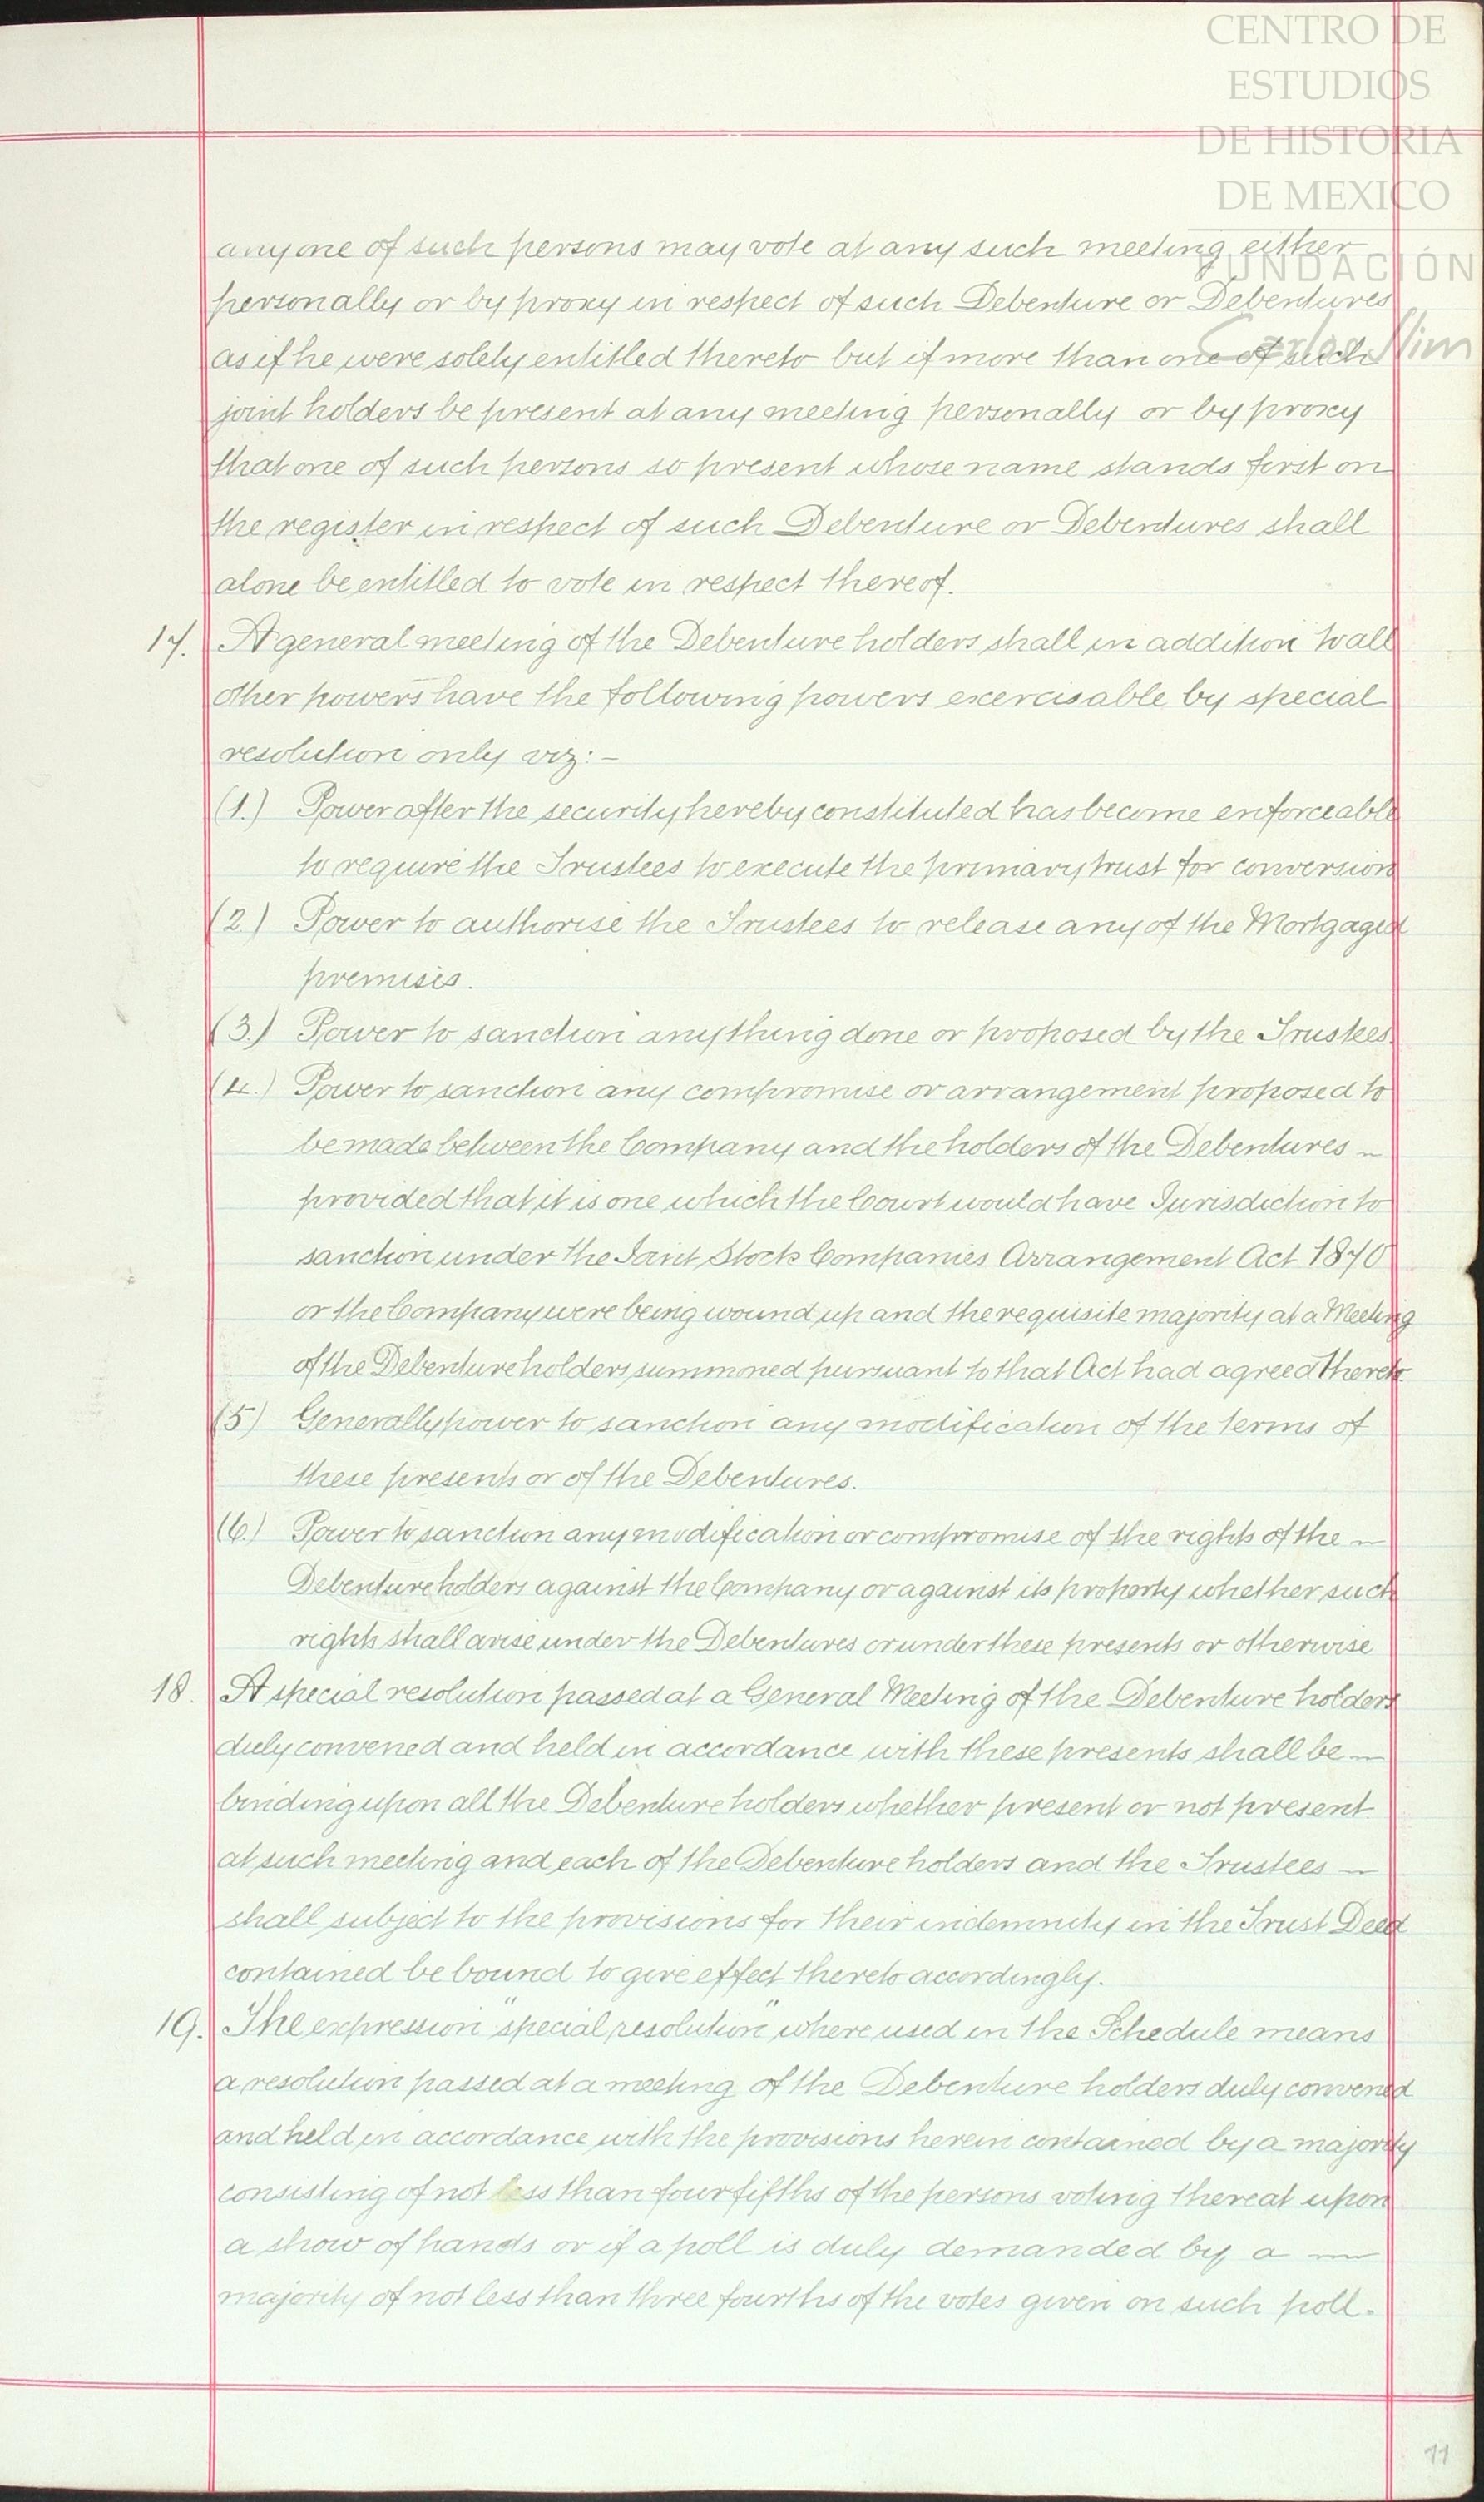 CENTRO DE
ESTUDIOS
DE HISTORIA
DE MEXICO
FUNDACIÓN
Carlos Slim
anyone of such persons may vote at any such meeting either
personally or by proxy in respect of such Debenture or Debentures
as if he were solely entitled thereto but if more than one of such
joint holders be present at any meeting personally or by proxy
that one of such persons so present whose name stands first on
the register in respect of such Debenture or Debentures shall
alone be entitled to vote in respect thereof.
17. A general meeting of the Debenture holders shall in addition to all
other powers have the following powers exercisable by special
resolution only viz:-
(1.) Power after the security hereby constituted has become enforceable
to require the Trustees to execute the primary trust for conversion
(2.) Power to authorise the Trustees to release any of the Mortgaged
premises.
(3.) Power to sanction anything done or proposed by the Trustees.
(4.) Power to sanction any compromise or arrangement proposed to
be made between the Company and the holders of the Debentures ~
provided that it is one which the Court would have Jurisdiction to
sanction under the Joint Stock Companies Arrangement Act 1870
or the Company were being wound up and the requisite majority at a Meeting
of the Debenture holders summoned pursuant to that Act had agreed thereto.
(5) Generally power to sanction any modification of the terms of
these presents or of the Debentures.
(6.) Power to sanction any modification or compromise of the rights of the ~
Debenture holders against the Company or against its property whether such
rights shall arise under the Debentures or under these presents or otherwise
18. A special resolution passed at a General Meeting of the Debenture holders
duly convened and held in accordance with these presents shall be ~
binding upon all the Debenture holders whether present or not present
at such meeting and each of the Debenture holders and the Trustees ~
shall subject to the provisions for their indemnity in the Trust Deed
contained be bound to give effect thereto accordingly.
19. The expression "special resolution" where used in the Schedule means
a resolution passed at a meeting of the Debenture holders duly convened
and held in accordance with the provisions herein contained by a majority
consisting of not less than four fifths of the persons voting thereat upon
a show of hands or if a poll is duly demanded by a ~
majority of not less than three fourths of the votes given on such poll.
11